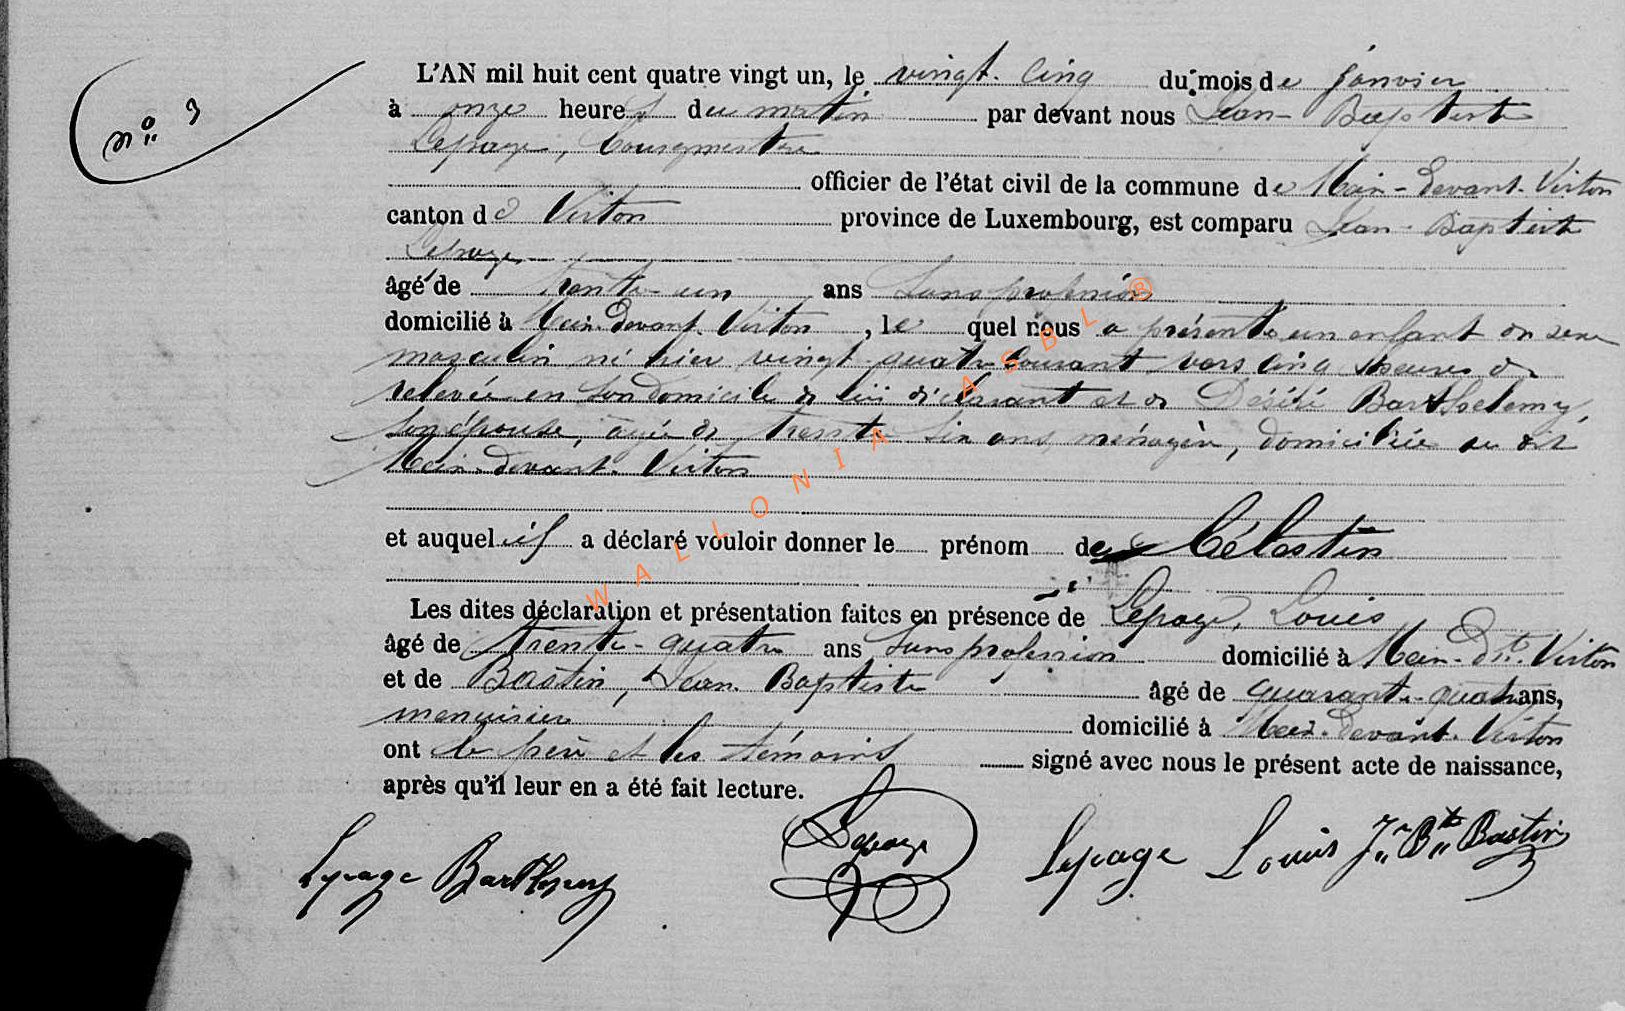 L'AN mil huit cent quatre vingt un, le vingt-cinq du mois de janvier
n° 3
à onze heures du matin par devant nous Jean-Baptiste
Lepage, Bourgmestre
officier de l'état civil de la commune de Meix-devant-Virton
canton de Virton province de Luxembourg, est comparu Jean-Baptiste
Lepage,
âgé de trente-un ans sans profession
domicilié à Meix-devant-Virton, lequel nous a présenté un enfant du sexe
masculin né hier vingt-quatre courant vers cinq heures de
relevée en son domicile de lui déclarant et de Désiré Barthelemy,
son épouse, âgée de trente six ans, ménagère, domiciliée au dit
Meix-devant-Virton
et auquel il a déclaré vouloir donner le prénom de Célestin
Les dites déclaration et présentation faites en présence de Lepage, Louis
âgé de trente-quatre ans sans profession domicilié à Meix-dt-Virton
et de Bastin, Jean Baptiste âgé de quarante-quatre ans,
menuisier domicilié à Meix-devant-Virton
ont le père et les témoins signé avec nous le présent acte de naissance,
après qu'il leur en a été fait lecture.
Lepage Barthelemy Lepage Lepage Louis Jn Bte Bastin
WALLONIA ASBL ®